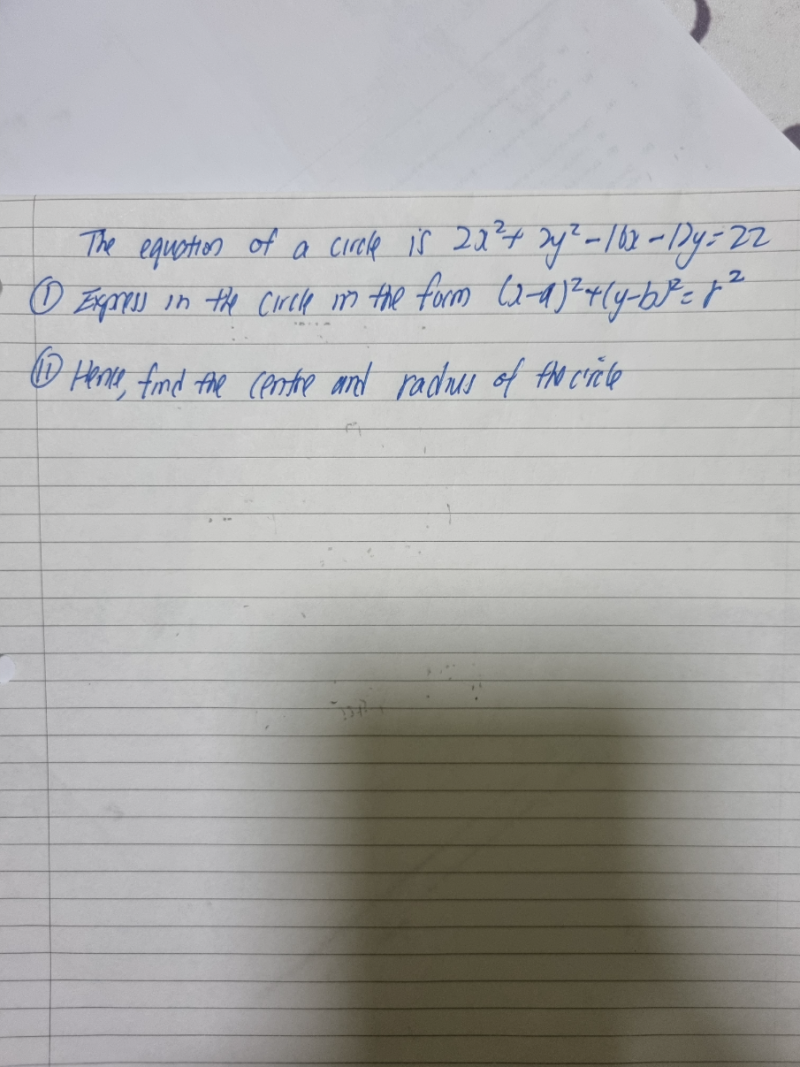 The equation of a circle is 2x²+ 2y²-16x-12y=22
(i) Express in the circle in the form (x-a)²+(y-b)²=r²
(ii) Hence, find the centre and radius of the circle